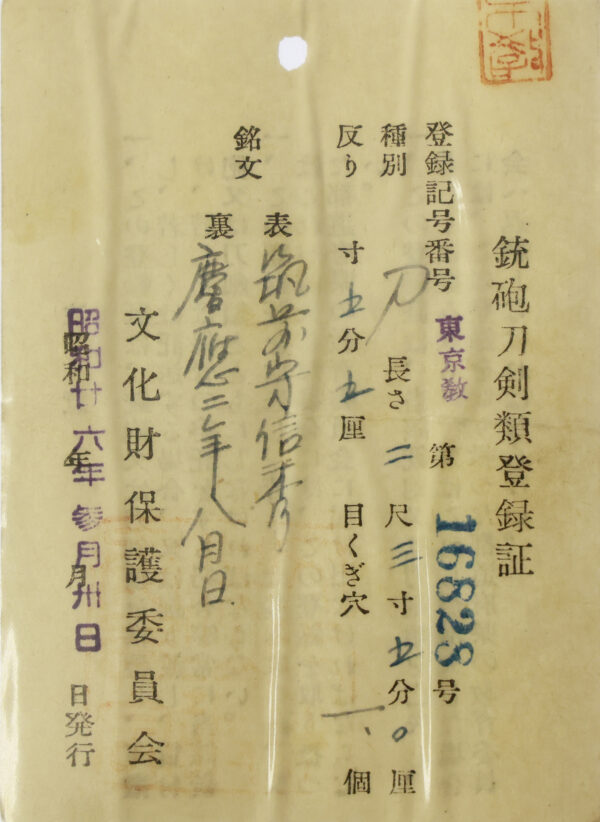 銃砲刀剣類登録証
登録記号番号 東京教 第 16828 号
種別 刀 長さ 二尺三寸五分〇厘
反り 寸五分五厘 目くぎ穴 一、個
銘文
表 筑前守信秀
裏 慶應二年八月日
文化財保護委員会
昭和 年 月 日発行
昭和廿六年参月卅日